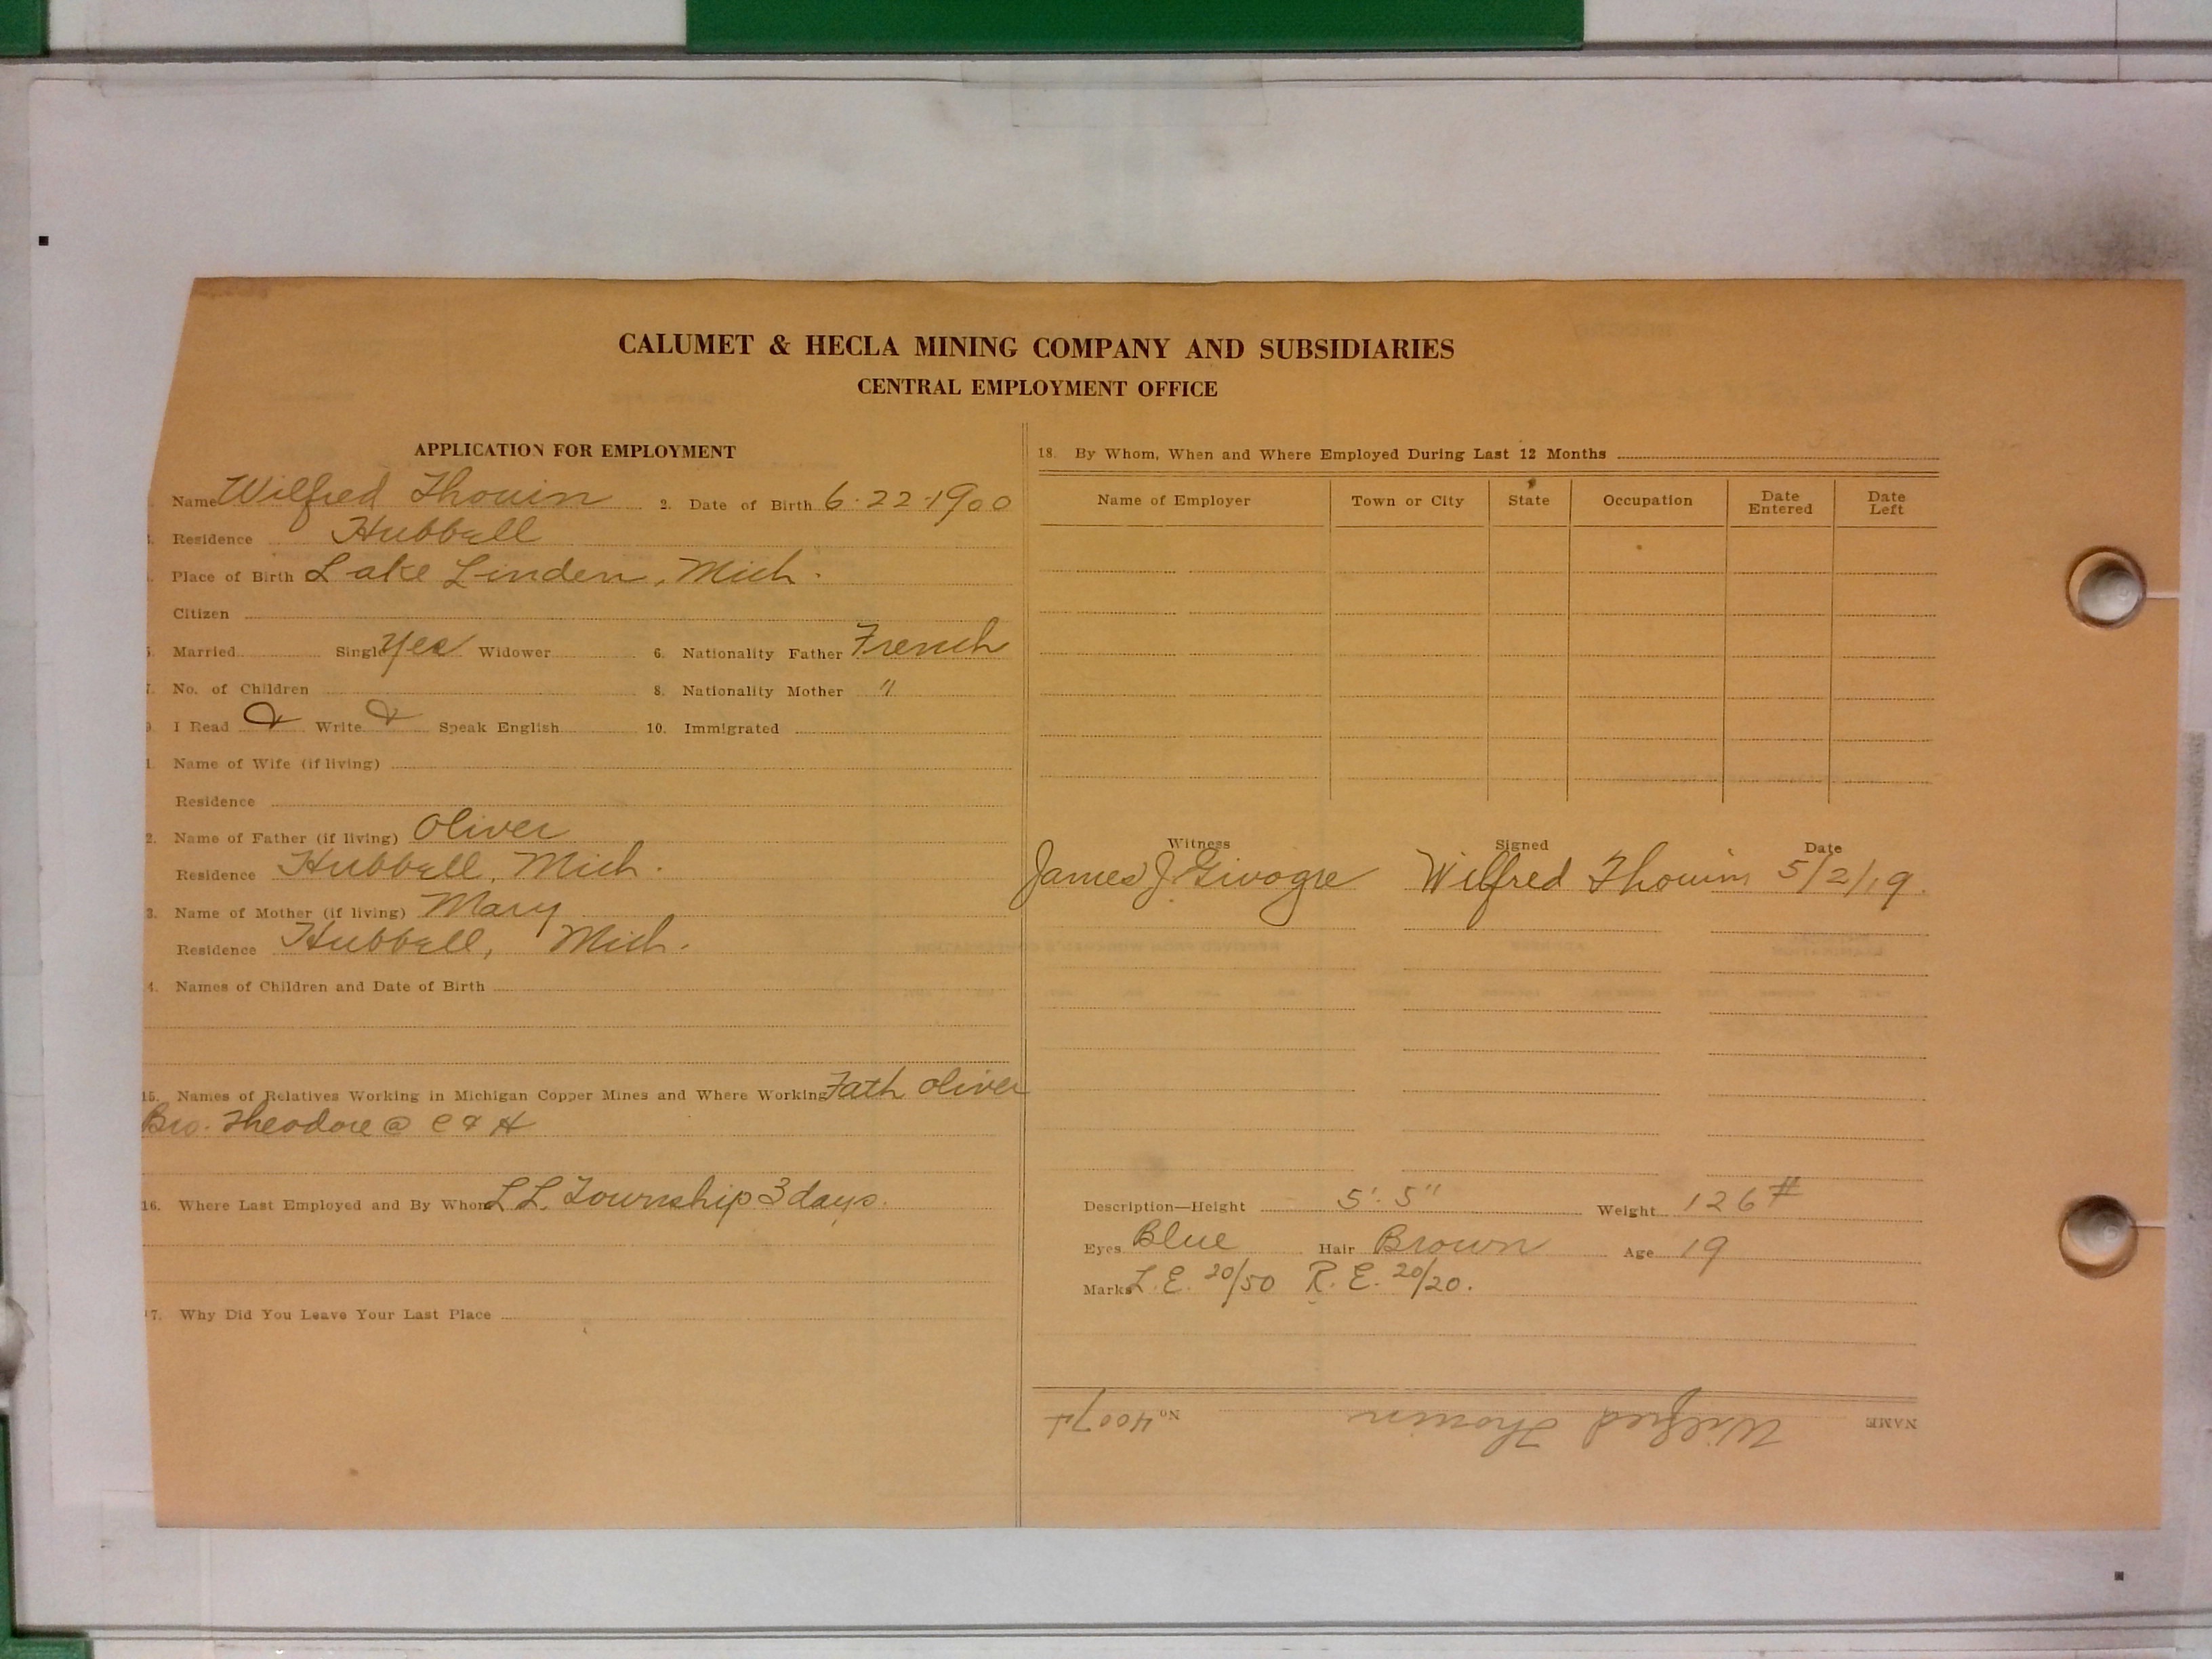 CALUMET & HECLA MINING COMPANY AND SUBSIDIARIES
CENTRAL EMPLOYMENT OFFICE
APPLICATION FOR EMPLOYMENT
Name Wilfred Thouin 2. Date of Birth 6-22-1900
Residence Hubbell
Place of Birth Lake Linden, Mich.
Citizen
Married Single Yes Widower 6. Nationality Father French
No. of Children 8. Nationality Mother "
I Read & Write & Speak English 10. Immigrated
Name of Wife (if living)
Residence
2. Name of Father (if living) Oliver
Residence Hubbell, Mich.
3. Name of Mother (if living) Mary
Residence Hubbell, Mich.
4. Names of Children and Date of Birth
15. Names of Relatives Working in Michigan Copper Mines and Where Working Fath Oliver
Bro. Theodore @ C & H
16. Where Last Employed and By Whom L L. Township 3 days.
17. Why Did You Leave Your Last Place
18. By Whom, When and Where Employed During Last 12 Months
Name of Employer Town or City State Occupation Date Entered Date Left
Witness Signed Date
James J. Wilfred Thouin 5/2/19.
Description—Height 5'. 5" Weight 126#
Eyes Blue Hair Brown Age 19
Marks L. E. 20/50 R. E. 20/20.
NAME Wilfred Thouin No.